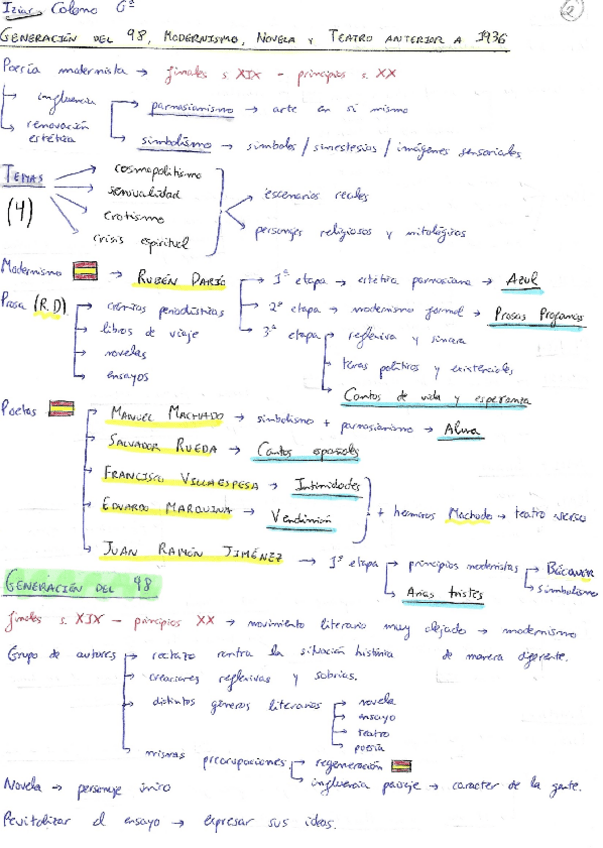 Iziar Colomo 6ª
2
GENERACIÓN DEL 98, MODERNISMO, NOVELA Y TEATRO ANTERIOR A 1936
Poesía modernista → finales s. XIX - principios s. XX
influencia → parnasianismo → arte en sí mismo
renovación estética → simbolismo → símbolos / sinestesias / imágenes sensoriales.
TEMAS (4)
cosmopolitismo
sensualidad
erotismo
crisis espiritual
escenarios reales
personajes religiosos y mitológicos
Modernismo → RUBÉN DARÍO → 1ª etapa → estética parnasiana → Azul
2ª etapa → modernismo formal → Prosas Profanas
3ª etapa → reflexiva y sincera
temas políticos y existenciales
Cantos de vida y esperanza
Prosa (R.D) → crónicas periodísticas
libros de viaje
novelas
ensayos
Poetas → MANUEL MACHADO → simbolismo + parnasianismo → Alma
SALVADOR RUEDA → Cantos españoles
FRANCISCO VILLAESPESA → Intimidades
EDUARDO MARQUINA → Vendimión
+ hermanos Machado → teatro verso
JUAN RAMÓN JIMÉNEZ → 1ª etapa → principios modernistas → BÉCQUER
simbolismo
Arias tristes
GENERACIÓN DEL 98
finales s. XIX - principios XX → movimiento literario muy alejado → modernismo
Grupo de autores → rechazo contra la situación histórica de manera diferente.
creaciones reflexivas y sobrias.
distintos géneros literarios → novela
ensayo
teatro
poesía
mismas preocupaciones → regeneración
influencia paisaje → caracter de la gente.
Novela → personaje único
Revitalizar el ensayo → expresar sus ideas.